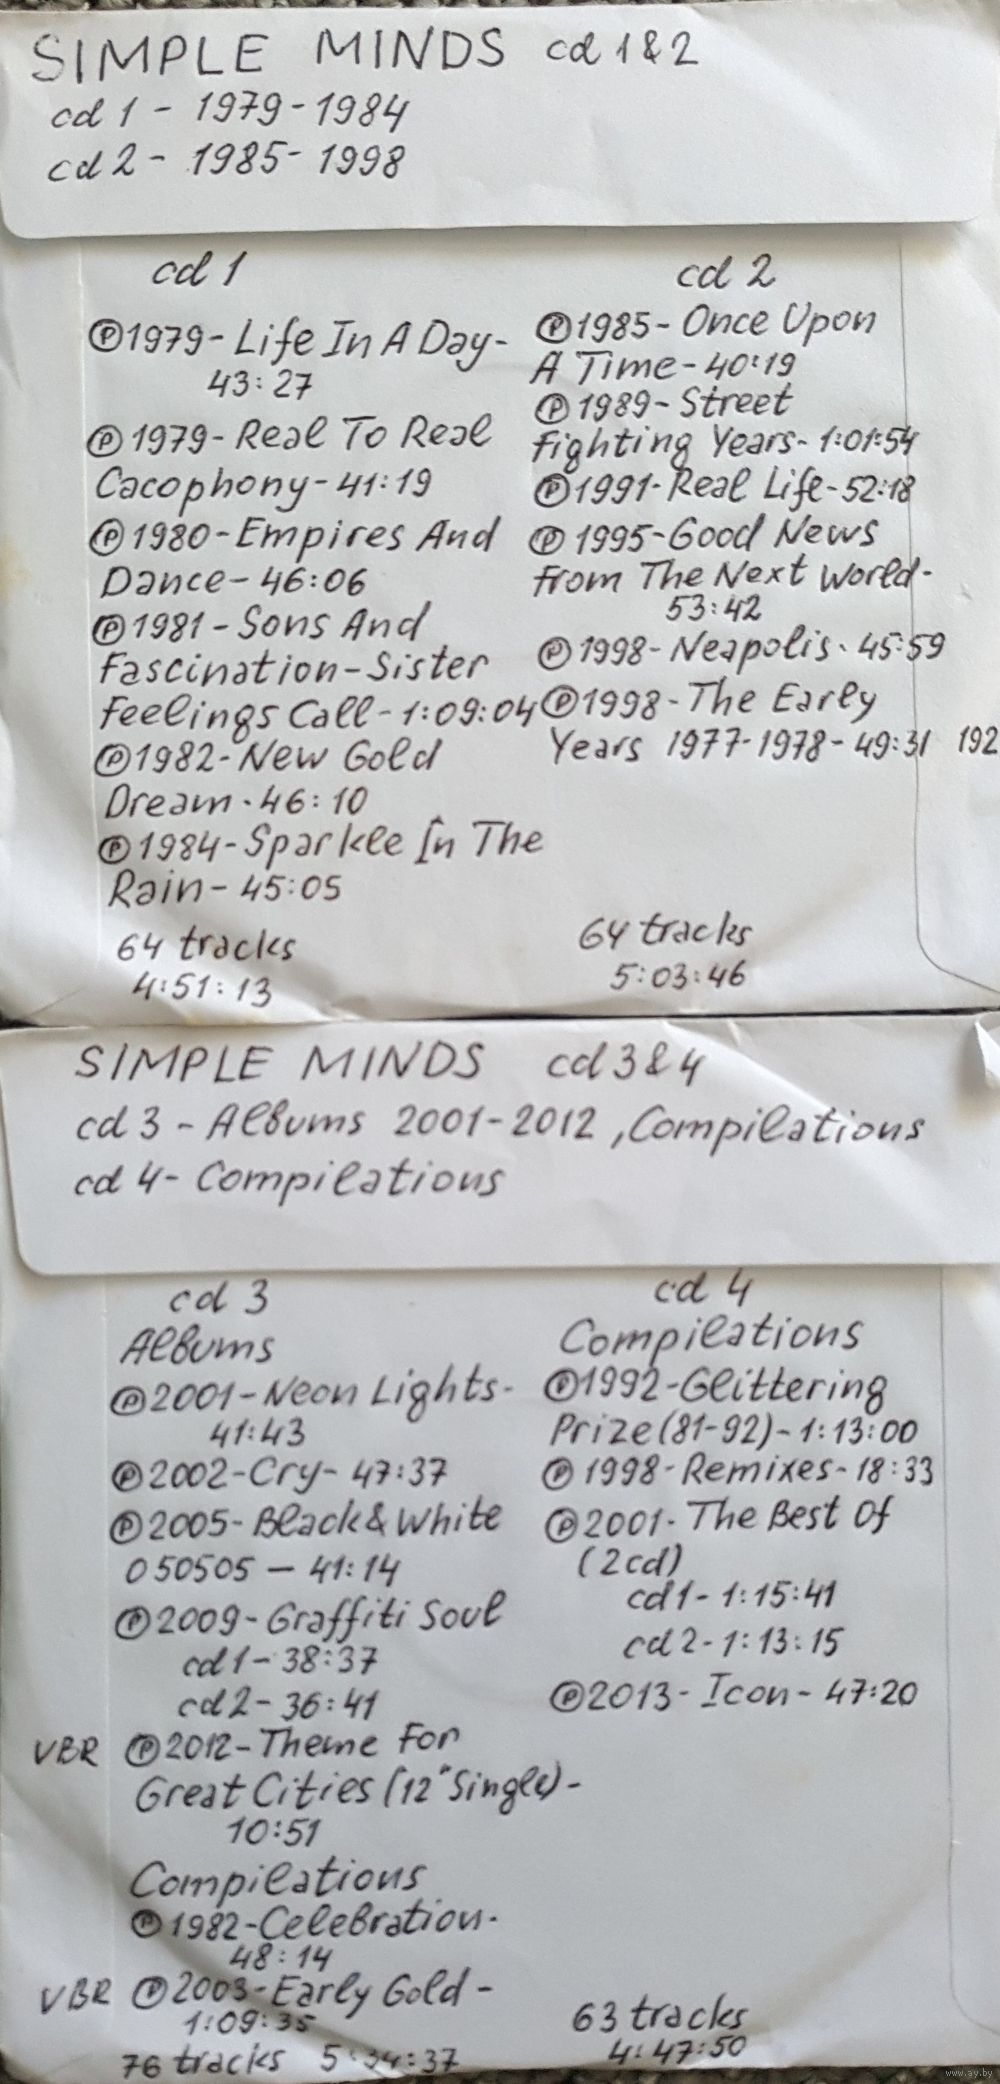 SIMPLE MINDS cd 1 & 2
cd 1 - 1979 - 1984
cd 2 - 1985 - 1998
cd 1
Ⓟ1979 - Life In A Day -
43:27
Ⓟ1979 - Real To Real
Cacophony - 41:19
Ⓟ1980 - Empires And
Dance - 46:06
Ⓟ1981 - Sons And
Fascination - Sister
Feelings Call - 1:09:04
Ⓟ1982 - New Gold
Dream - 46:10
Ⓟ1984 - Sparkle In The
Rain - 45:05
64 tracks
4:51:13
cd 2
Ⓟ1985 - Once Upon
A Time - 40:19
Ⓟ1989 - Street
Fighting Years - 1:01:54
Ⓟ1991 - Real Life - 52:18
Ⓟ1995 - Good News
From The Next World -
53:42
Ⓟ1998 - Neapolis - 45:59
Ⓟ1998 - The Early
Years 1977-1978 - 49:31 192
64 tracks
5:03:46
SIMPLE MINDS cd 3 & 4
cd 3 - Albums 2001-2012, Compilations
cd 4 - Compilations
cd 3
Albums
Ⓟ2001 - Neon Lights -
41:43
Ⓟ2002 - Cry - 47:37
Ⓟ2005 - Black & White
050505 - 41:14
Ⓟ2009 - Graffiti Soul
cd 1 - 38:37
cd 2 - 36:41
VBR Ⓟ2012 - Theme For
Great Cities (12" Single) -
10:51
Compilations
Ⓟ1982 - Celebration -
48:14
VBR Ⓟ2003 - Early Gold -
1:09:35
76 tracks 5:34:37
cd 4
Compilations
Ⓟ1992 - Glittering
Prize (81-92) - 1:13:00
Ⓟ1998 - Remixes - 18:33
Ⓟ2001 - The Best Of
(2cd)
cd 1 - 1:15:41
cd 2 - 1:13:15
Ⓟ2013 - Icon - 47:20
63 tracks
4:47:50
www.ay.by